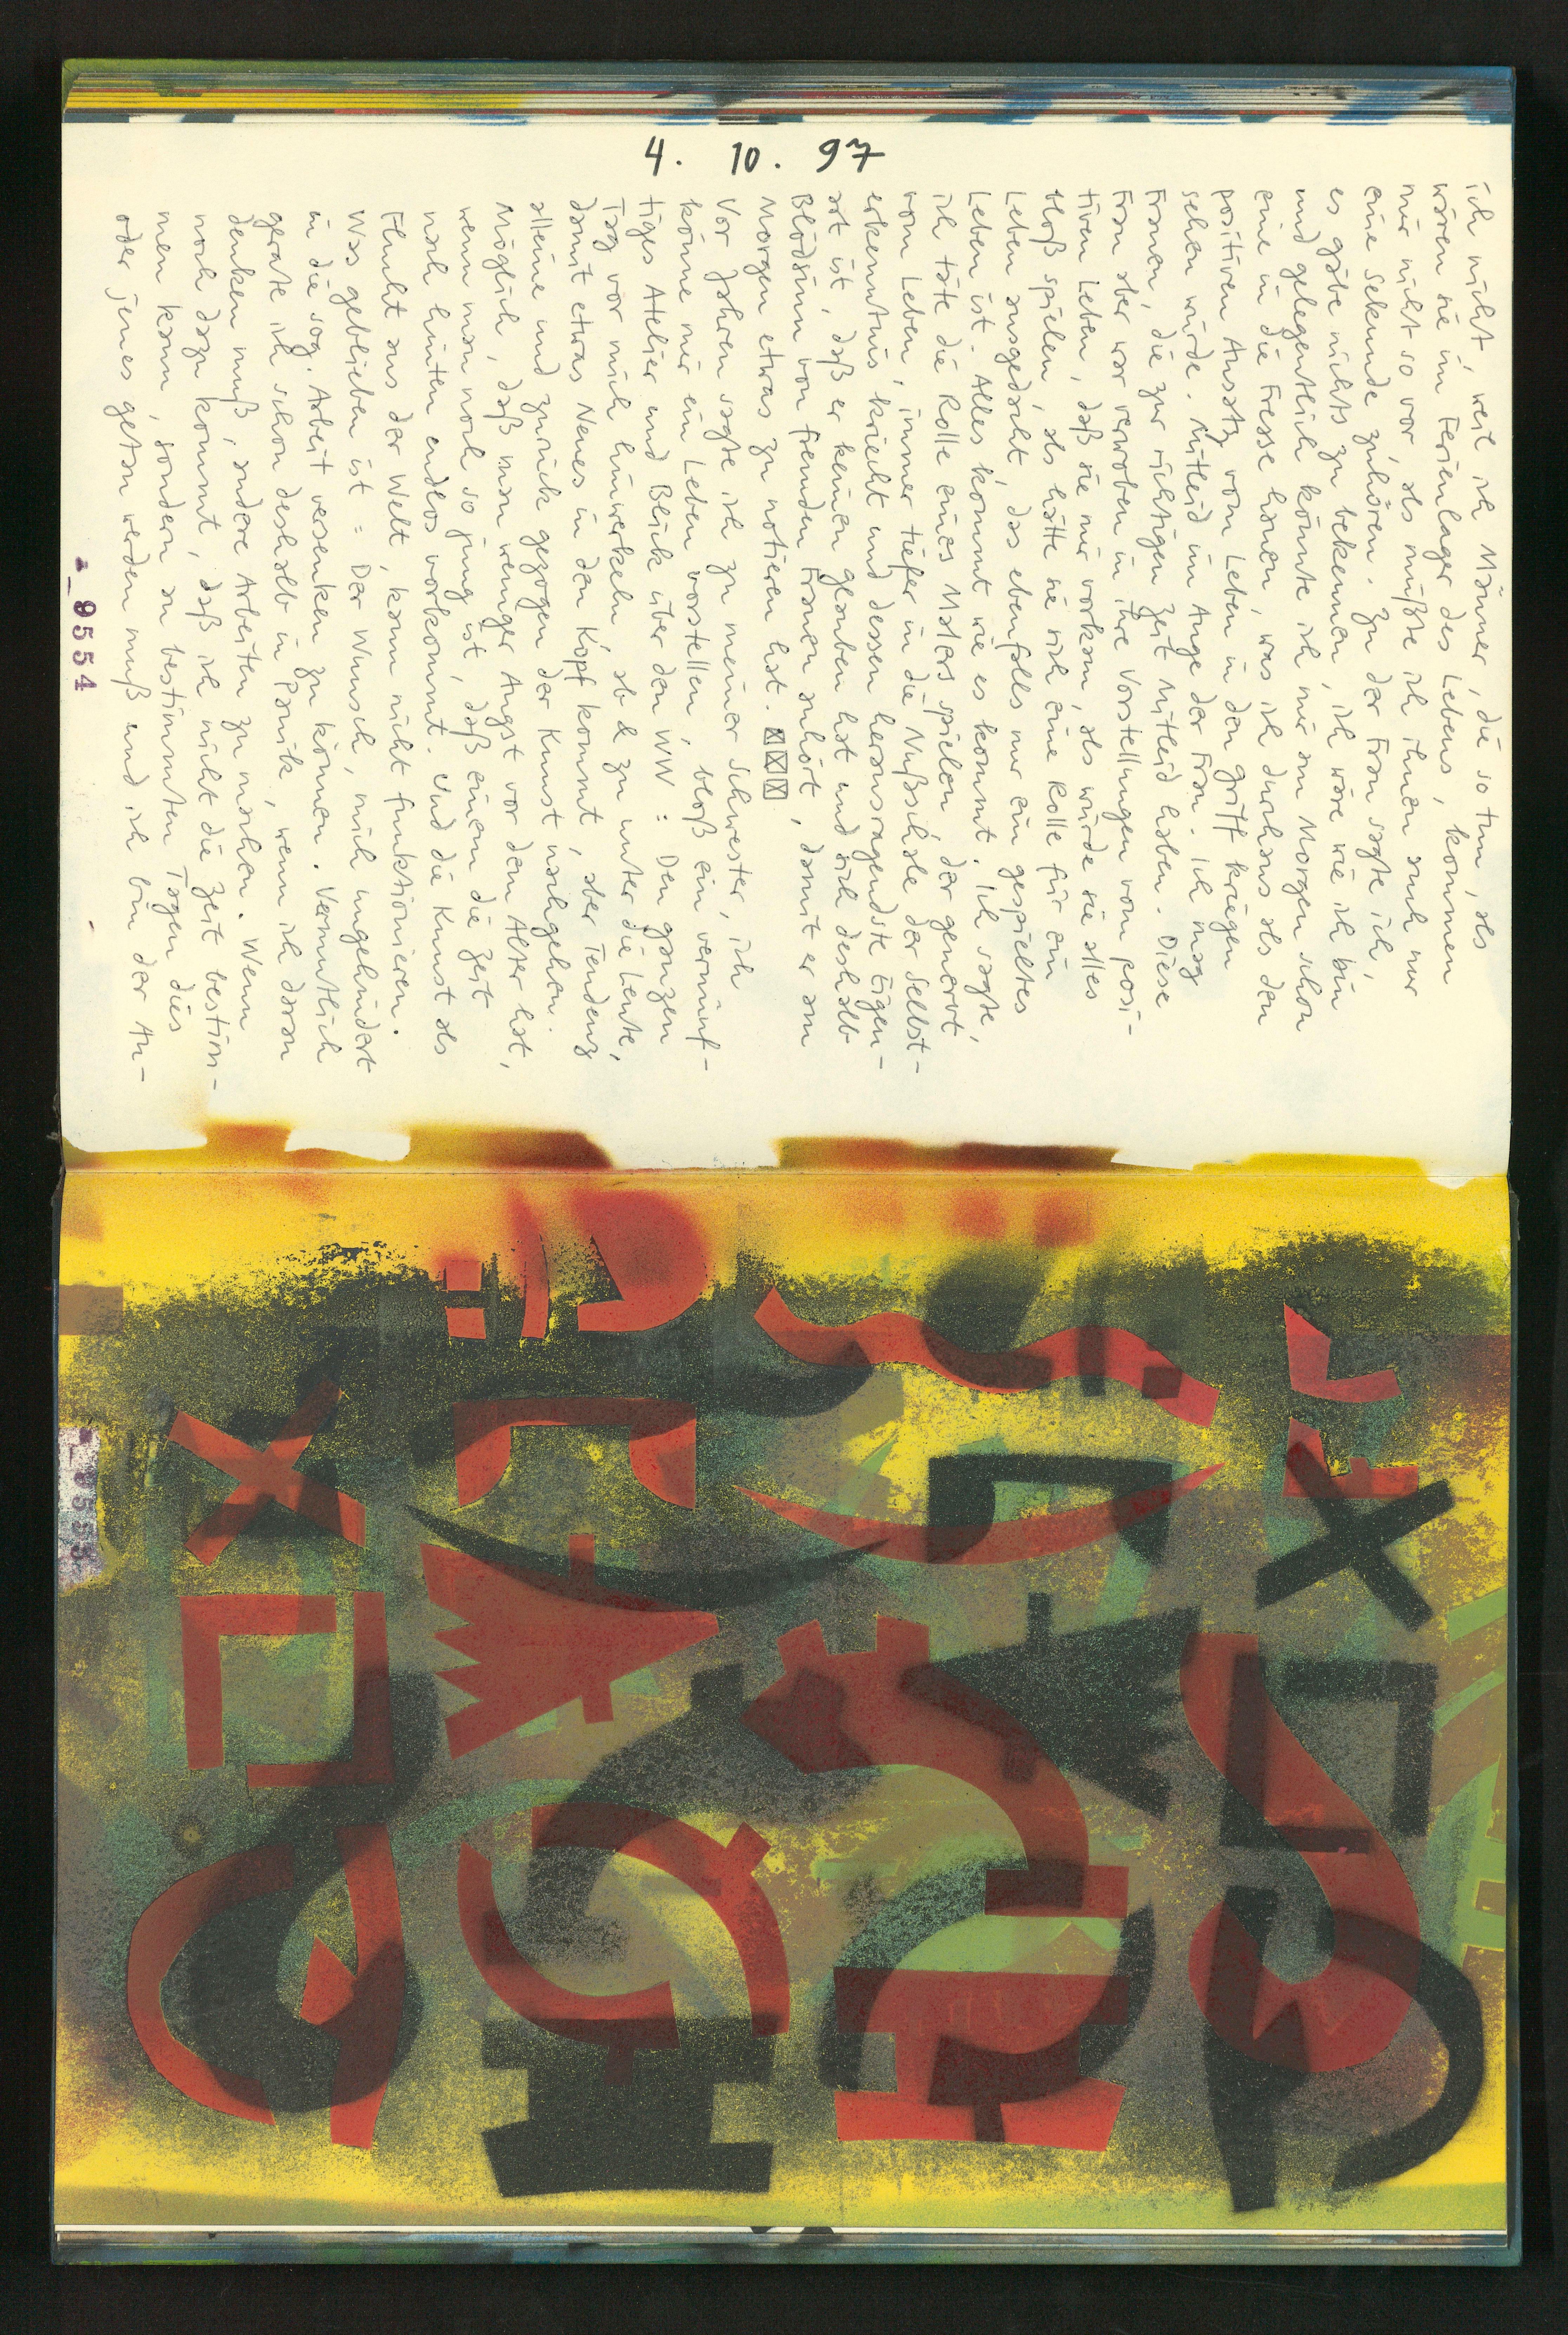 4. 10. 97
ich nicht, weil ich Männer, die so tun, als
wären sie im Ferienlager des Lebens, kommen
mir nicht so vor, als müßte ich ihnen auch nur
eine Sekunde zuhören. Zu der Frau sagte ich,
es gäbe nichts zu bekennen, ich wäre wie ich bin
und gelegentlich könnte ich mir am Morgen schon
eine in die Fresse hauen, was ich durchaus als den
positiven Ansatz vom Leben in den Griff kriegen
sehen würde. Mitleid im Auge der Frau. Ich mag
Frauen, die zur richtigen Zeit Mitleid haben. Diese
Frau aber war verwoben in ihre Vorstellungen vom posi-
tiven Leben, daß sie mir vorkam, als würde sie alles
bloß spielen, als hätte sie sich eine Rolle für ein
Leben ausgedacht, das ebenfalls nur ein gespieltes
Leben ist. Alles kommt wie es kommt. Ich sagte,
ich täte die Rolle eines Malers spielen, der genervt
vom Leben, immer tiefer in die Nußschale der Selbst-
erkenntnis kriecht und dessen herausragendste Eigen-
art ist, daß er keinen Glauben hat und sich deshalb
Blödsinn von fremden Frauen anhört, damit er am
Morgen etwas zu notieren hat. ☒☒☒
Vor Jahren sagte ich zu meiner Schwester, ich
könne mir ein Leben vorstellen, bloß ein vernünf-
tiges Atelier und Blick über den WW: Den ganzen
Tag vor mich hinwerkeln, ab & zu unter die Leute,
damit etwas Neues in den Kopf kommt, aber Tendenz
alleine und zurück gezogen der Kunst nachgehen.
Möglich, daß man weniger Angst vor dem Alter hat,
wenn man noch so jung ist, daß einem die Zeit
nach hinten endlos vorkommt. Und die Kunst als
Flucht aus der Welt, kann nicht funktionieren.
Was geblieben ist: Der Wunsch, mich ungehindert
in die sog. Arbeit versenken zu können. Vermutlich
gerate ich schon deshalb in Panik, wenn ich daran
denken muß, andere Arbeiten zu machen. Wenn
noch dazu kommt, daß ich nicht die Zeit bestim-
men kann, sondern an bestimmten Tagen dies
oder jenes getan werden muß und ich bin der An-
a_9554